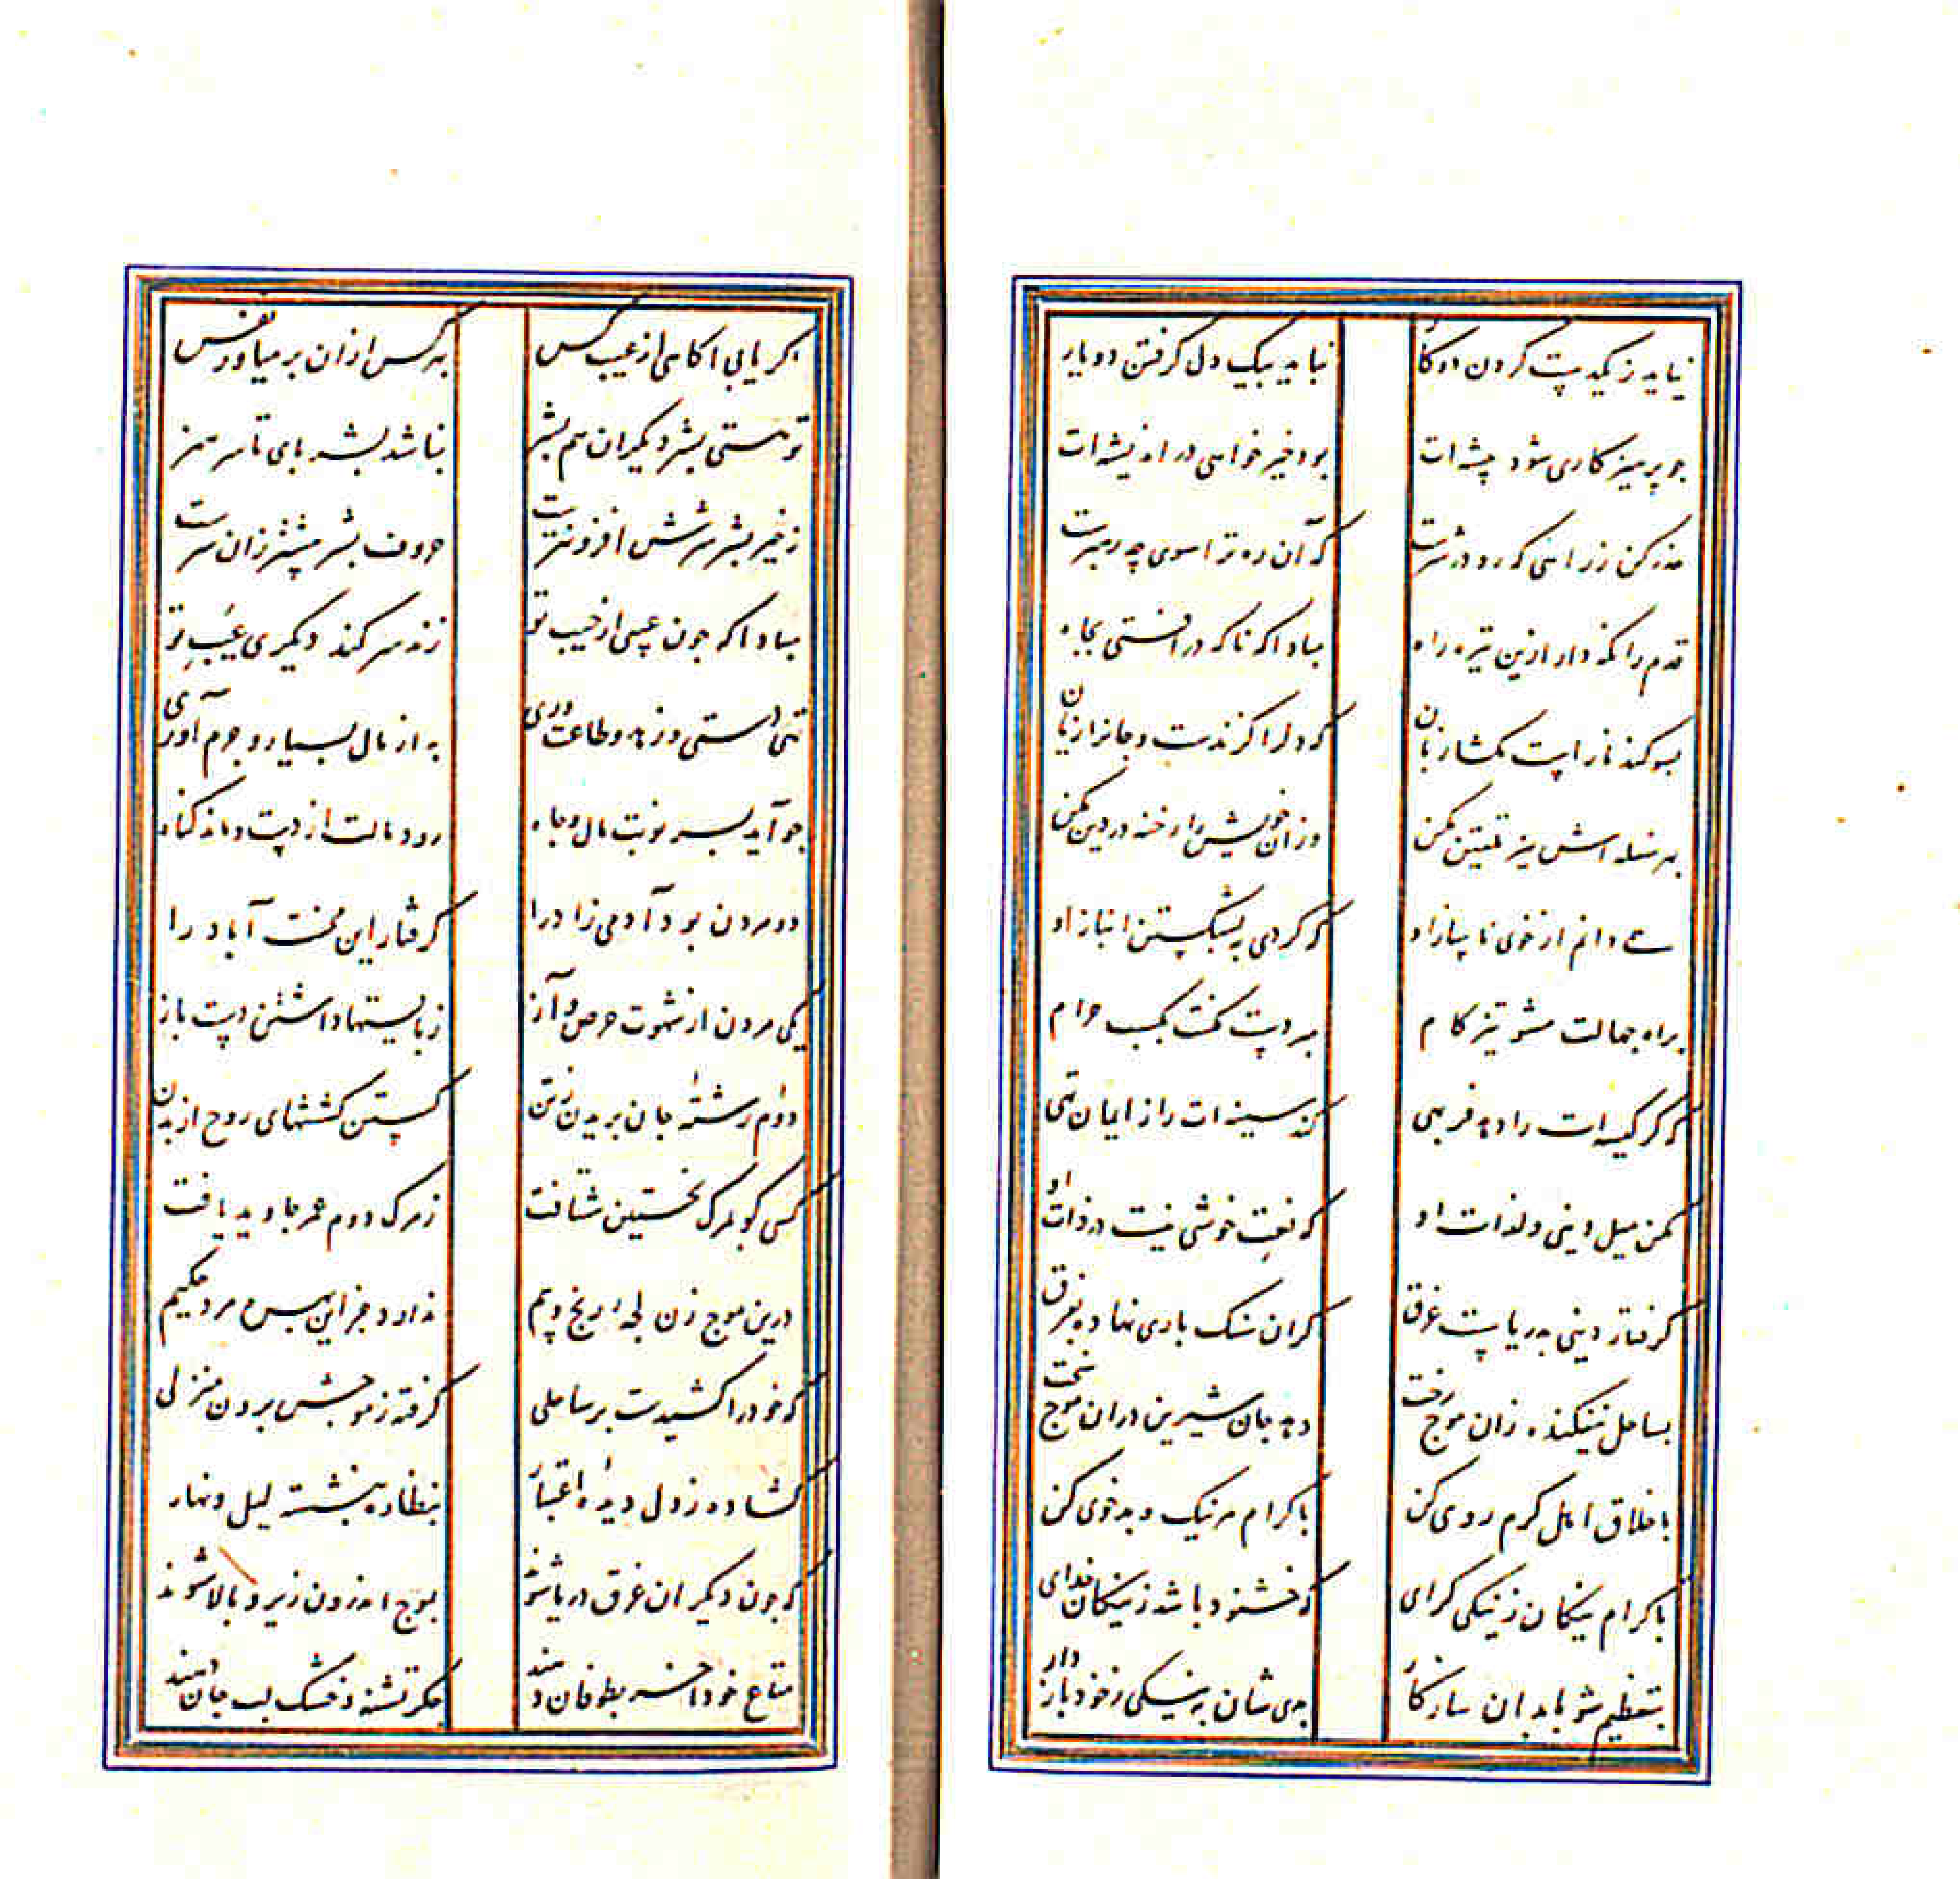 نیاید ز یکدست کردن دو کار نباید بیک دل گرفتن دو یار
جو پرهیزکاری شود پیشه ات بود خیر خواهی در اندیشه ات
حذر کن ز راهی که رو در شرست که آن ره ترا سوی چه رهبرست
قدم را نکه دار ازین تیره راه مباد اکه ناکه در افتی بجاه
بسوکند ناراست مکشا زبان که دلرا کزندست و جانرا زیان
براه جهالت مشو تیز کام مبر دست کفت بکسب حرام
که کر کیسه ات را دهد فربهی کند سینه ات را ز ایمان تهی
مکن میل دینی و لذات او که نعت خوشی نیست در ذات او
کرفتار دینی بدریاست غرق کران سنک باری نهاده بفرق
بساحل نیفکنده زان موج رخت دهد جان شیرین دران موج سخت
باخلاق اهل کرم روی کن باکرام هر نیک و بد خوی کن
باکرام نیکان ز نیکی کرای که خشنود باشد ز نیکان خدای
بتعظیم شو با بدان سازکار بدی شان به نیکی ز خود باز دار
اکر یابی اکاهی از عیب کس بهر کس ازان بر میاور نفس
تو هستی بشر دیکران هم بشر نباشد بشر پای تا سر هنر
ز خیر بشر شرش افزونترست حروف بشر بیشتر زان شرست
مبادا که جون عیبی از جیب تو زند سر کند دیکری عیب تو
تهی دستی و زهد و طاعت وری به از مال بسیار و جرم آوری
جو آید بسر نوبت مال و جاه رود مالت از دست و ماند کناه
دو مردن بود آدمی زاد را کرفتار این محنت آباد را
یکی مردن از شهوت حرص و آز ز بایستها داشتن دست باز
دوم رشته جان بریدن ز تن کسستن کششهای روح از بدن
کسی کو بمرک نخستین شتافت ز مرک دوم عمر جاوید یافت
درین موج زن لجه رنج و بیم نداد د جز این بس مرد حکیم
که خود را کشیدست بر ساحلی کرفته ز موجش برون منزلی
کشاده ز دل دیده اعتبار بنظاره بنشسته لیل و نهار
که جون دیکران غرق دریا شوند بموج اندرون زیر و بالا شوند
متاع خود اخر بطوفان دهند جکر تشنه و خشک لب جان دهند